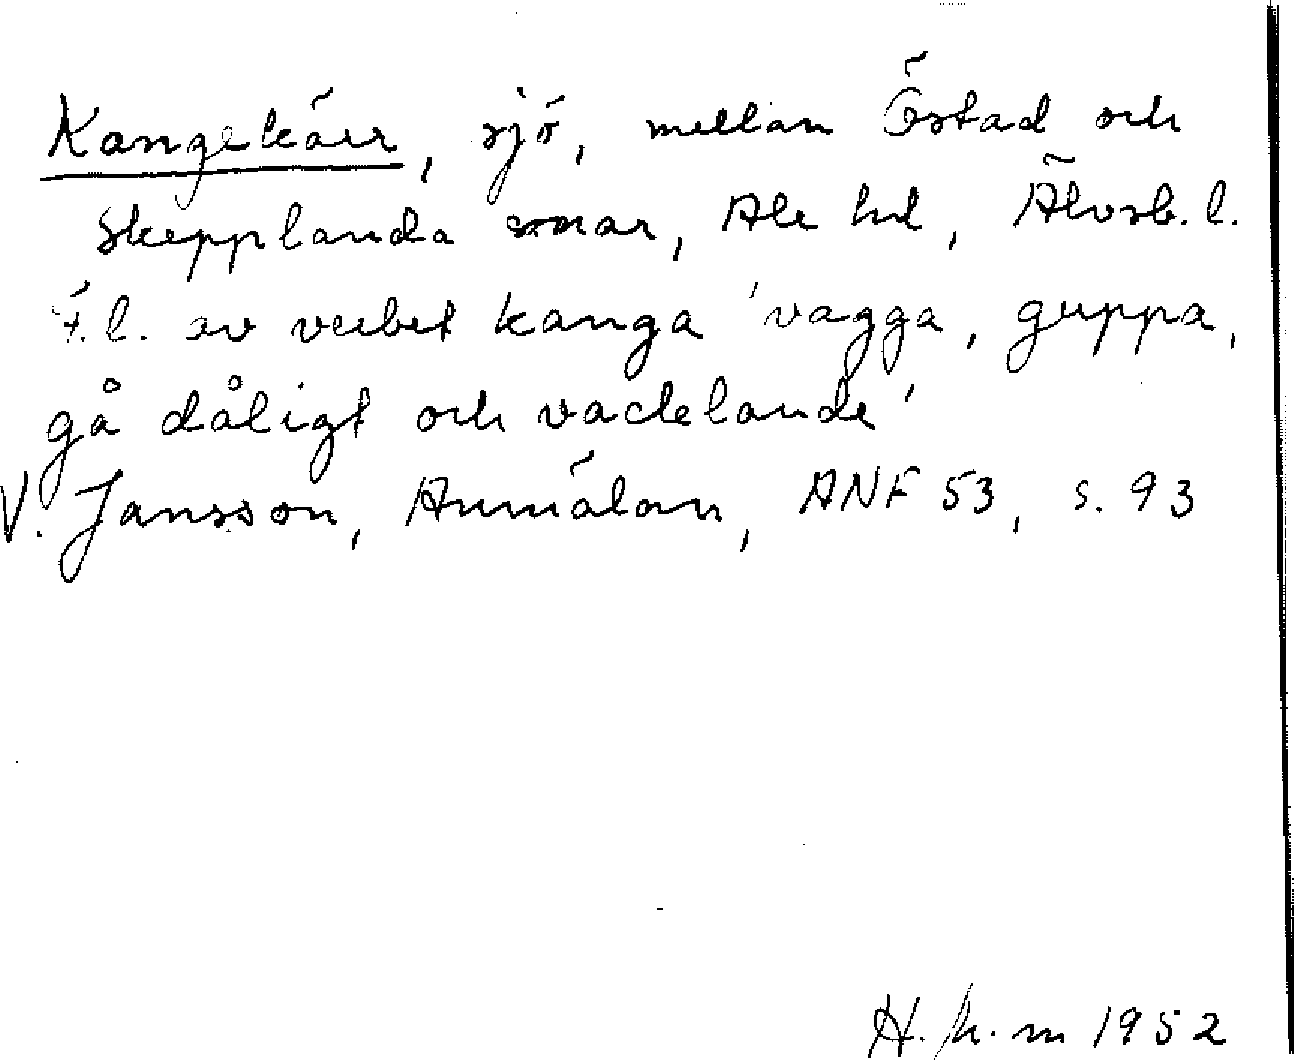 Kangekärr, sjö, mellan Östad och
Skepplanda snar, Ale hd, Älvsb. l.
F.l. av verbet kanga 'vagga, guppa,
gå dåligt och vacklande'
V. Jansson, Anmälan, ANF 53, s. 93
H. . m 1952